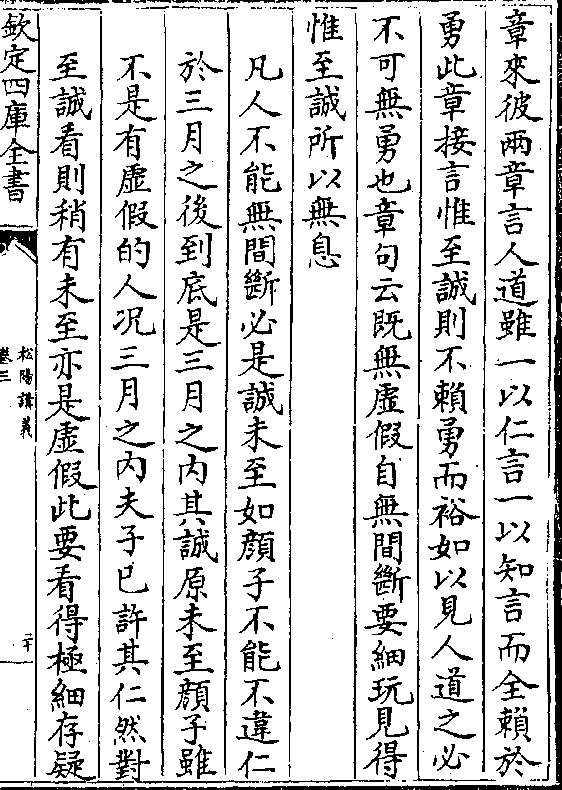 章來彼兩章言人道雖一以仁言一以知言而全賴於
勇此章接言惟至誠則不賴勇而裕如以見人道之必
不可無勇也章句云既無虛假自無間斷要細玩見得
惟至誠所以無息
凡人不能無間斷必是誠未至如顔子不能不違仁
於三月之後到底是三月之内其誠原未至顔子雖
不是有虛假的人况三月之内夫子已許其仁然對
至誠看則稍有未至亦是虛假此要看得極細存疑
欽定四庫全書
松陽講義
卷三
二十